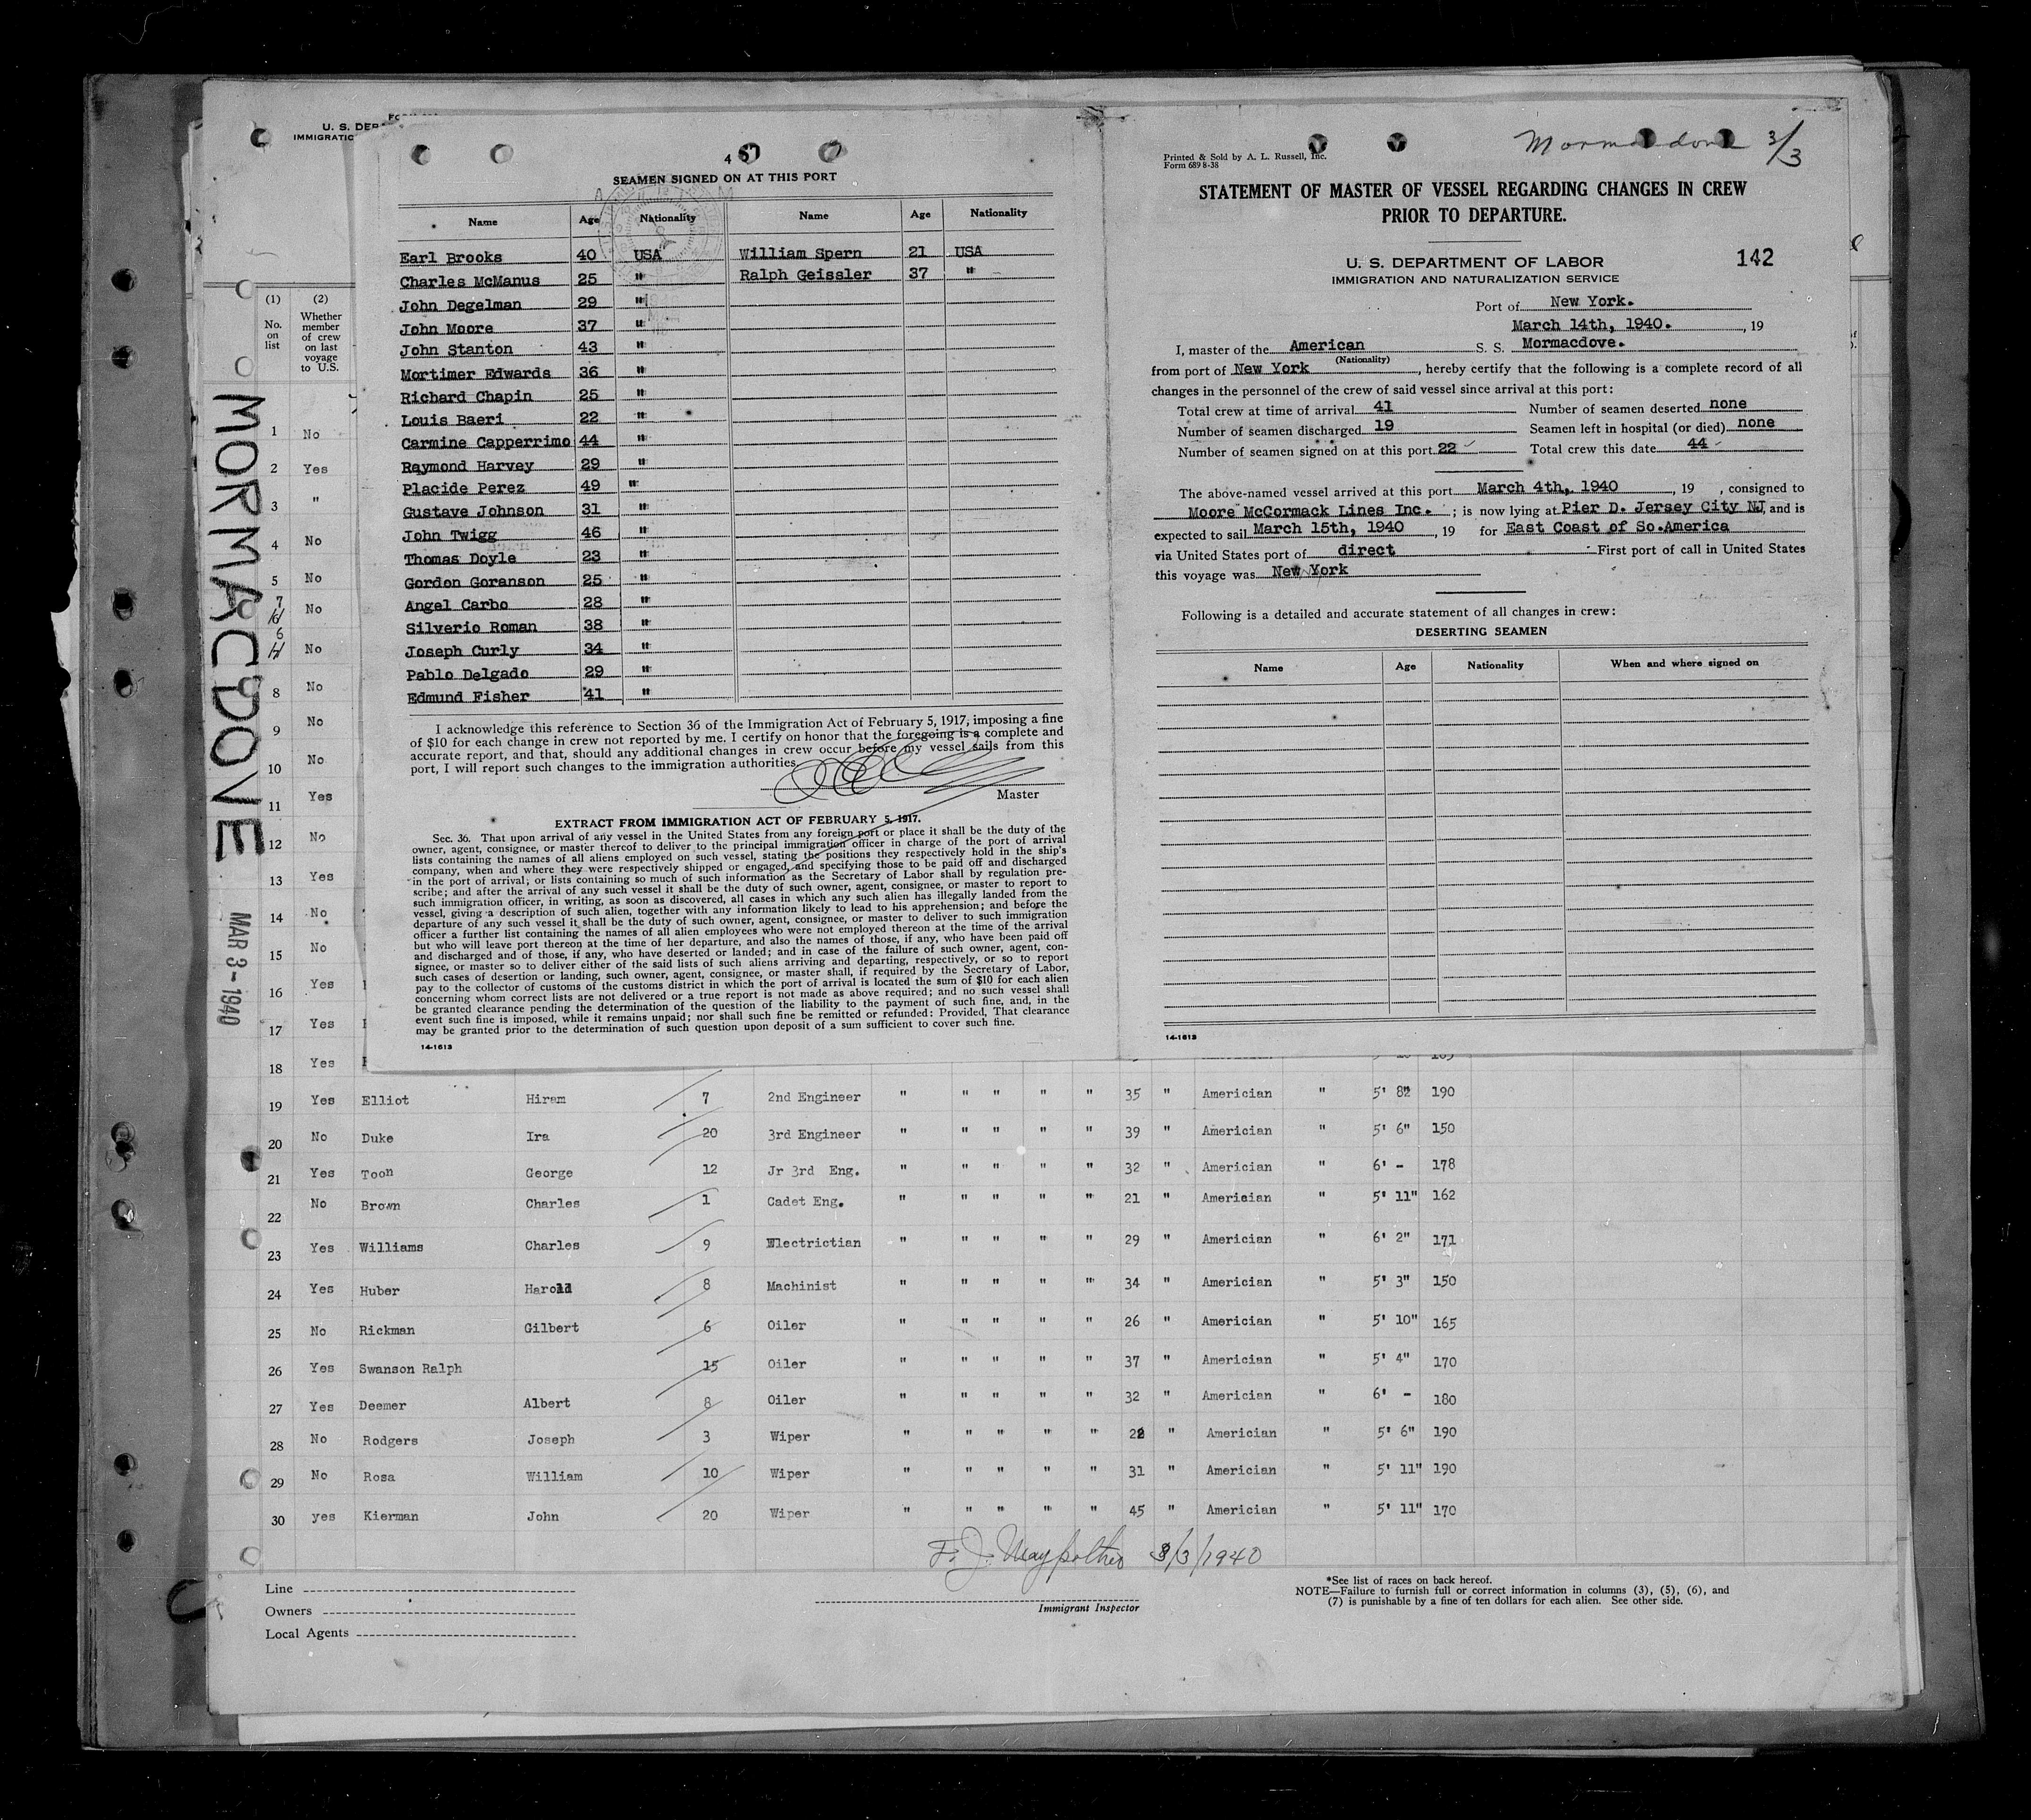 FORM
U. S. DEP
IMMIGRATIO
(1) (2)
No. on list
Whether member of crew on last voyage to U.S.
MORMACDOVE
MAR 3 - 1940
1 No
2 Yes
3 "
4 No
5 No
7 No
6 No
8 No
9 No
10 No
11 Yes
12 No
13 Yes
14 No
15 No
16 Yes
17 Yes
18 Yes
4
SEAMEN SIGNED ON AT THIS PORT
Name Age Nationality Name Age Nationality
Earl Brooks 40 USA William Spern 21 USA
Charles McManus 25 " Ralph Geissler 37 "
John Degelman 29 "
John Moore 37 "
John Stanton 43 "
Mortimer Edwards 36 "
Richard Chapin 25 "
Louis Baeri 22 "
Carmine Capperrimo 44 "
Raymond Harvey 29 "
Placide Perez 49 "
Gustave Johnson 31 "
John Twigg 46 "
Thomas Doyle 23 "
Gordon Goranson 25 "
Angel Carbo 28 "
Silverio Roman 38 "
Joseph Curly 34 "
Pablo Delgado 29 "
Edmund Fisher 41 "
I acknowledge this reference to Section 36 of the Immigration Act of February 5, 1917, imposing a fine
of $10 for each change in crew not reported by me. I certify on honor that the foregoing is a complete and
accurate report, and that, should any additional changes in crew occur before my vessel sails from this
port, I will report such changes to the immigration authorities.
Master
EXTRACT FROM IMMIGRATION ACT OF FEBRUARY 5, 1917.
Sec. 36. That upon arrival of any vessel in the United States from any foreign port or place it shall be the duty of the
owner, agent, consignee, or master thereof to deliver to the principal immigration officer in charge of the port of arrival
lists containing the names of all aliens employed on such vessel, stating the positions they respectively hold in the ship's
company, when and where they were respectively shipped or engaged, and specifying those to be paid off and discharged
in the port of arrival; or lists containing so much of such information as the Secretary of Labor shall by regulation pre-
scribe; and after the arrival of any such vessel it shall be the duty of such owner, agent, consignee, or master to report to
such immigration officer, in writing, as soon as discovered, all cases in which any such alien has illegally landed from the
vessel, giving a description of such alien, together with any information likely to lead to his apprehension; and before the
departure of any such vessel it shall be the duty of such owner, agent, consignee, or master to deliver to such immigration
officer a further list containing the names of all alien employees who were not employed thereon at the time of the arrival
but who will leave port thereon at the time of her departure, and also the names of those, if any, who have been paid off
and discharged and of those, if any, who have deserted or landed; and in case of the failure of such owner, agent, con-
signee, or master so to deliver either of the said lists of such aliens arriving and departing, respectively, or so to report
such cases of desertion or landing, such owner, agent, consignee, or master shall, if required by the Secretary of Labor,
pay to the collector of customs of the customs district in which the port of arrival is located the sum of $10 for each alien
concerning whom correct lists are not delivered or a true report is not made as above required; and no such vessel shall
be granted clearance pending the determination of the question of the liability to the payment of such fine, and, in the
event such fine is imposed, while it remains unpaid; nor shall such fine be remitted or refunded: Provided, That clearance
may be granted prior to the determination of such question upon deposit of a sum sufficient to cover such fine.
14-1613
Mormacdove 3/3
Printed & Sold by A. L. Russell, Inc.
Form 689 8-38
STATEMENT OF MASTER OF VESSEL REGARDING CHANGES IN CREW
PRIOR TO DEPARTURE.
U. S. DEPARTMENT OF LABOR 142
IMMIGRATION AND NATURALIZATION SERVICE
Port of New York.
March 14th, 1940. , 19
I, master of the American S. S. Mormacdove.
(Nationality)
from port of New York , hereby certify that the following is a complete record of all
changes in the personnel of the crew of said vessel since arrival at this port:
Total crew at time of arrival 41 Number of seamen deserted none
Number of seamen discharged 19 Seamen left in hospital (or died) none
Number of seamen signed on at this port 22 Total crew this date 44
The above-named vessel arrived at this port March 4th, 1940 , 19 , consigned to
Moore McCormack Lines Inc. ; is now lying at Pier D. Jersey City NJ, and is
expected to sail March 15th, 1940 , 19 for East Coast of So.America
via United States port of direct First port of call in United States
this voyage was New York
Following is a detailed and accurate statement of all changes in crew:
DESERTING SEAMEN
Name Age Nationality When and where signed on
14-1613
19 Yes Elliot Hiram 7 2nd Engineer " " " " " 35 " Americian " 5' 8" 190
20 No Duke Ira 20 3rd Engineer " " " " " 39 " Americian " 5' 6" 150
21 Yes Toon George 12 Jr 3rd Eng. " " " " " 32 " Americian " 6' - 178
22 No Brown Charles 1 Cadet Eng. " " " " " 21 " Americian " 5' 11" 162
23 Yes Williams Charles 9 Electrictian " " " " " 29 " Americian " 6' 2" 171
24 Yes Huber Harold 8 Machinist " " " " " 34 " Americian " 5' 3" 150
25 No Rickman Gilbert 6 Oiler " " " " " 26 " Americian " 5' 10" 165
26 Yes Swanson Ralph 15 Oiler " " " " " 37 " Americian " 5' 4" 170
27 Yes Deemer Albert 8 Oiler " " " " " 32 " Americian " 6' - 180
28 No Rodgers Joseph 3 Wiper " " " " " 22 " Americian " 5' 6" 190
29 No Rosa William 10 Wiper " " " " " 31 " Americian " 5' 11" 190
30 yes Kierman John 20 Wiper " " " " " 45 " Americian " 5' 11" 170
F. J. 3/3/1940
Line
Owners
Local Agents
Immigrant Inspector
*See list of races on back hereof.
NOTE—Failure to furnish full or correct information in columns (3), (5), (6), and
(7) is punishable by a fine of ten dollars for each alien. See other side.